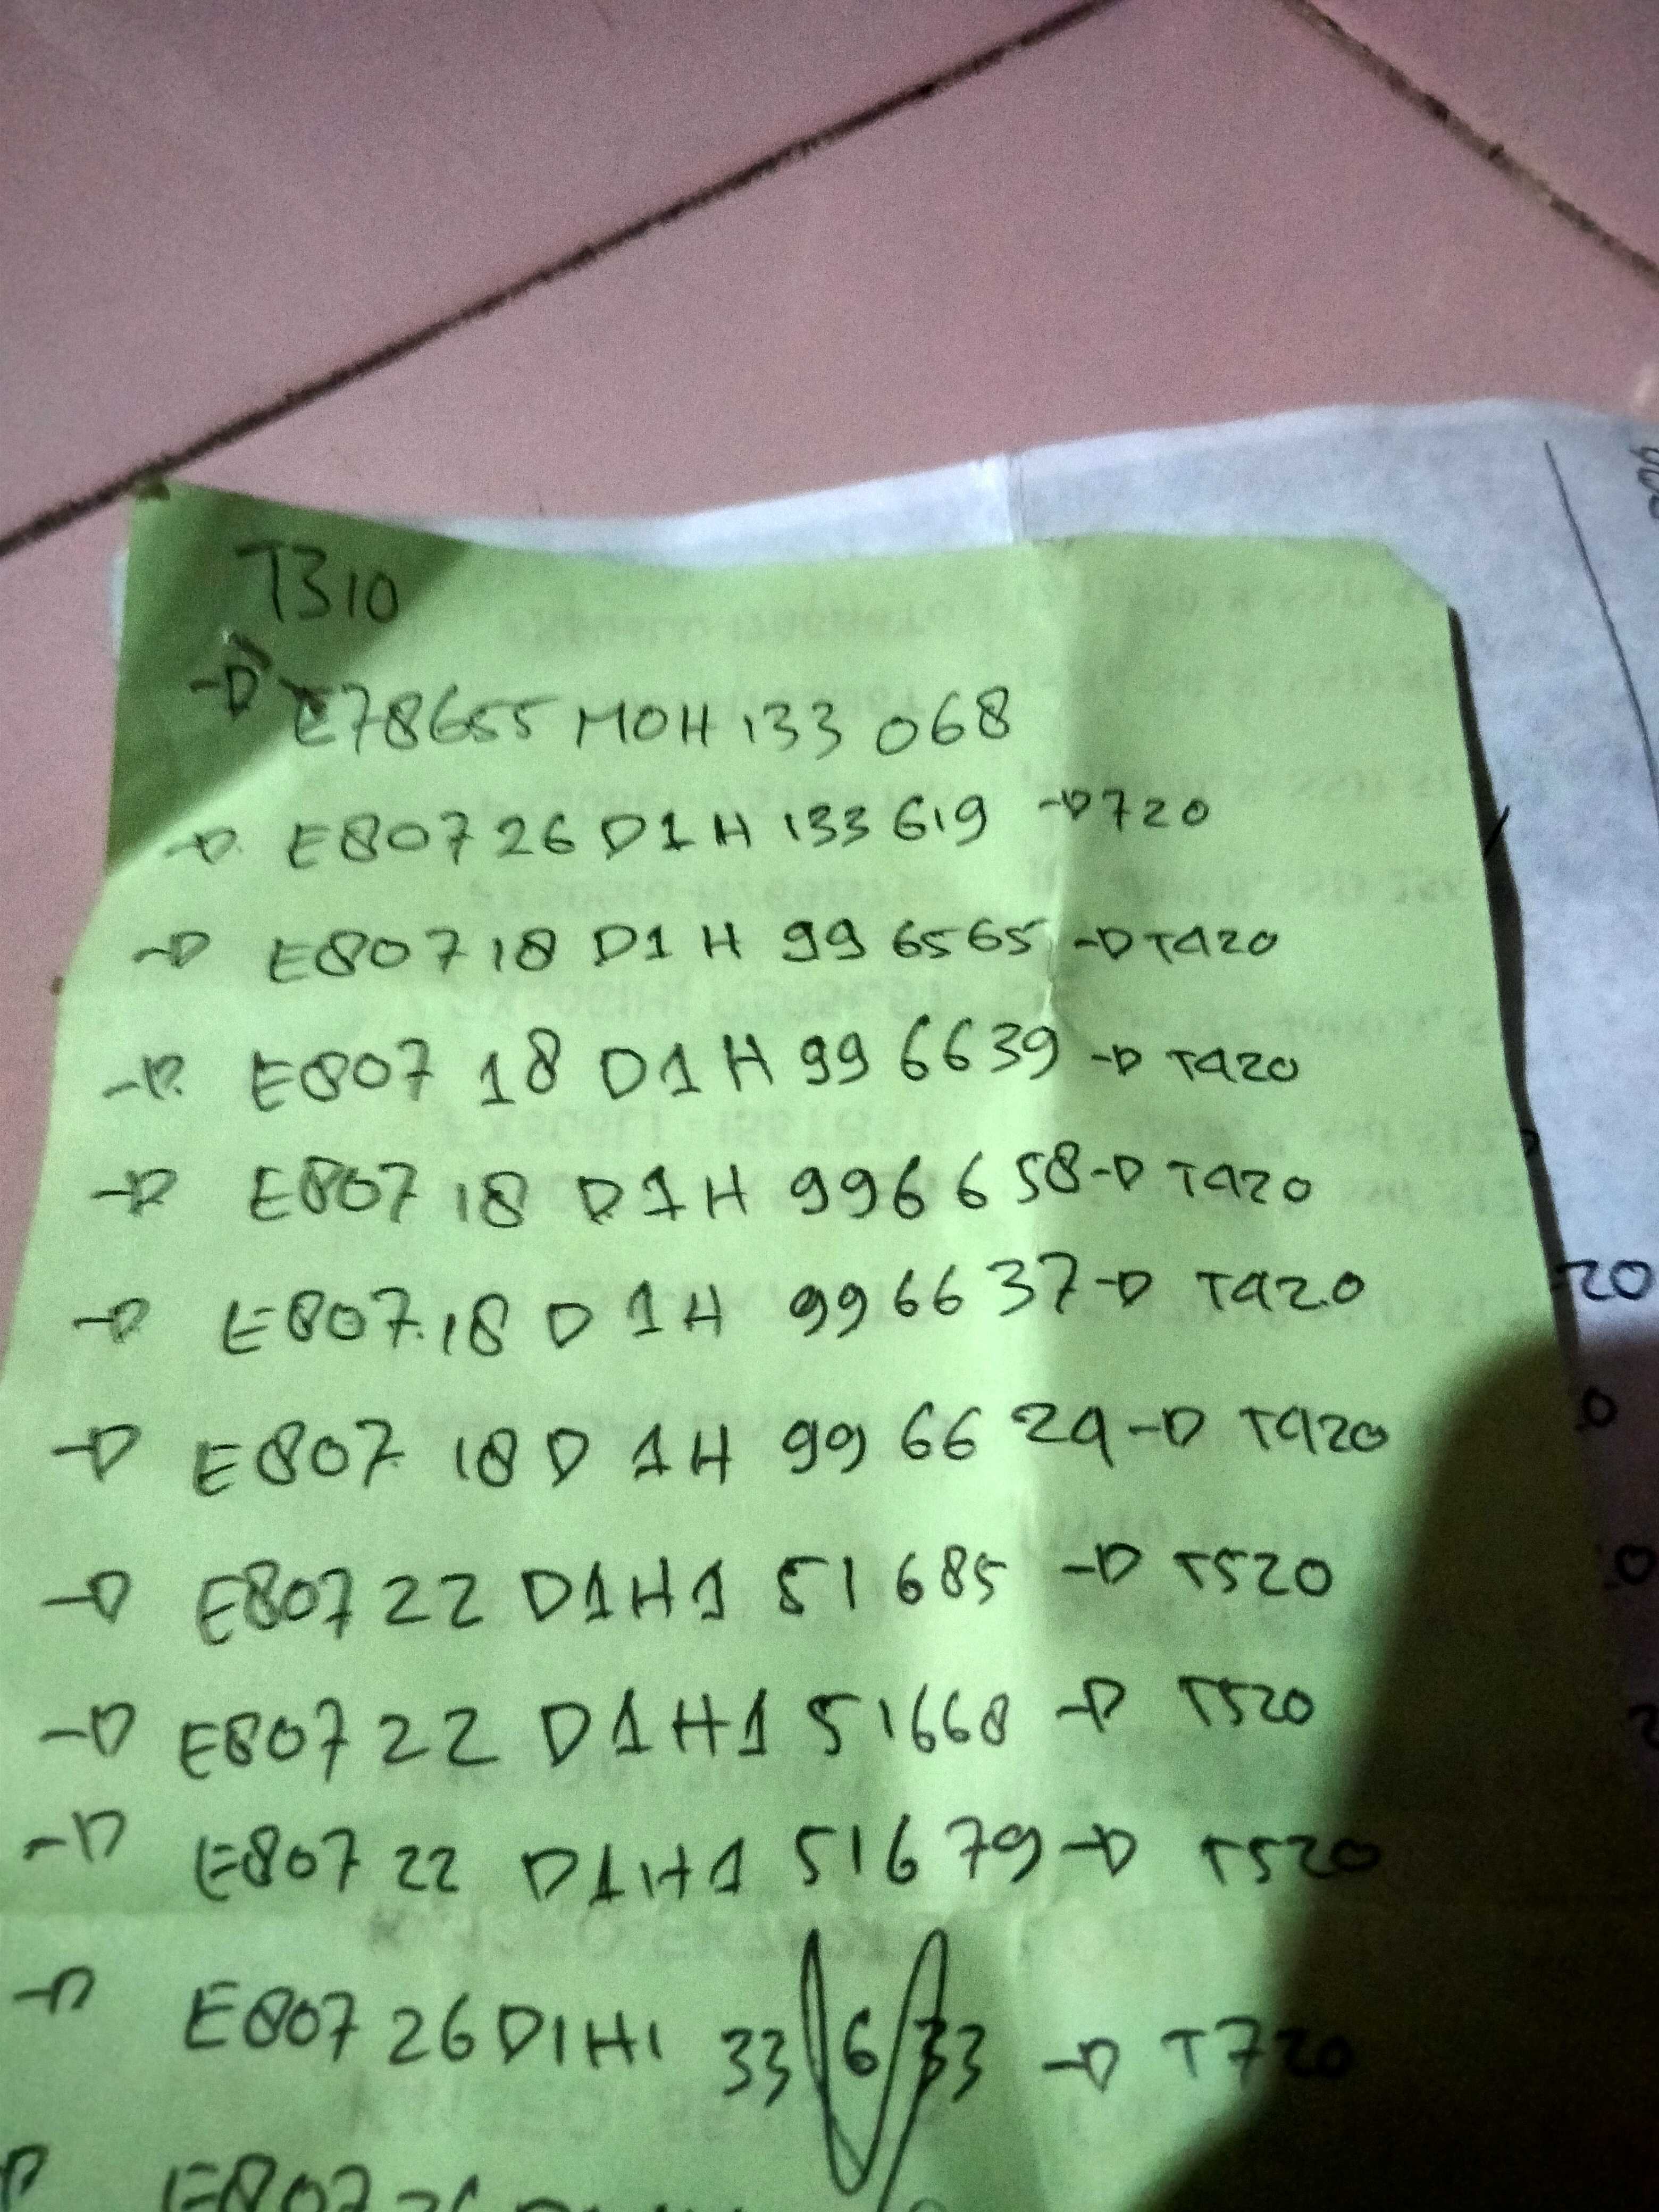 T310
→ E78655MOH133068
→ E80726D1H133619 → 720
→ E80718D1H996565 → T420
→ E80718D1H996639 → T420
→ E80718D1H996658 → T420
→ E80718D1H996637 → T420
→ E80718D1H996624 → T420
→ E80722D1H151685 → T520
→ E80722D1H151668 → T520
→ E80722D1H151679 → T520
→ E80726D1H133633 → T720